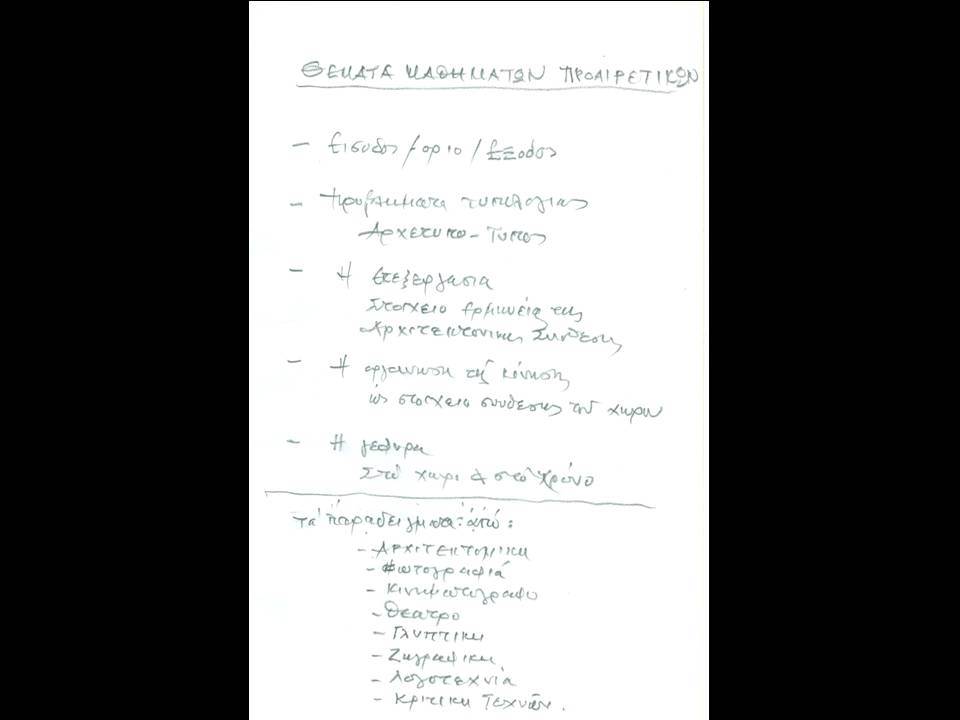 ΘΕΜΑΤΑ ΜΑΘΗΜΑΤΩΝ ΠΡΟΑΙΡΕΤΙΚΩΝ
– Εισοδος / οριο / Εξοδος
– Προβληματα τυπολογιας
Αρχετυπο – Τυπος
– Η επεξεργασια
Στοιχειο ερμηνείας της
Αρχιτεκτονικης Συνθεσης
– Η οργανωση της κίνησης
ὡς στοιχειο συνθεσης τοῦ χωρου
– Η γεφυρα
Στο χωρο & στο χρόνο
Τα παραδειγματα ἀπό:
– Αρχιτεκτονικη
– Φωτογραφιά
– Κινηματογραφο
– Θεατρο
– Γλυπτικη
– Ζωγραφικη
– Λογοτεχνία
– Κριτικη Τεχνῶν.